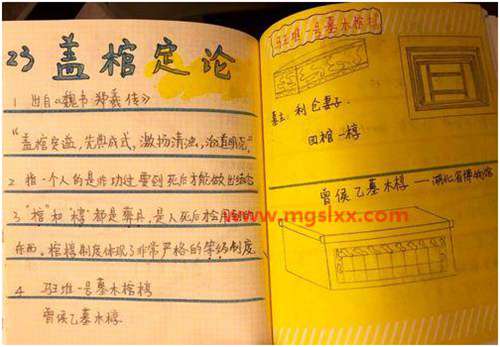 23 盖棺定论
1 出自《魏书·郑羲传》
"盖棺定谥,先典成式,激扬清浊,治道明范。"
2 指一个人的是非功过要到死后才能做出结论
3 "棺"和"椁"都是葬具,是人死后
东西。棺椁制度体现了非常严格的等级制度
4 马王堆一号墓木棺椁
曾侯乙墓木椁
马王堆一号墓木棺椁
墓主:利仓妻子
四棺一椁
曾侯乙墓木椁——湖北省博物馆
www.mgslxx.com